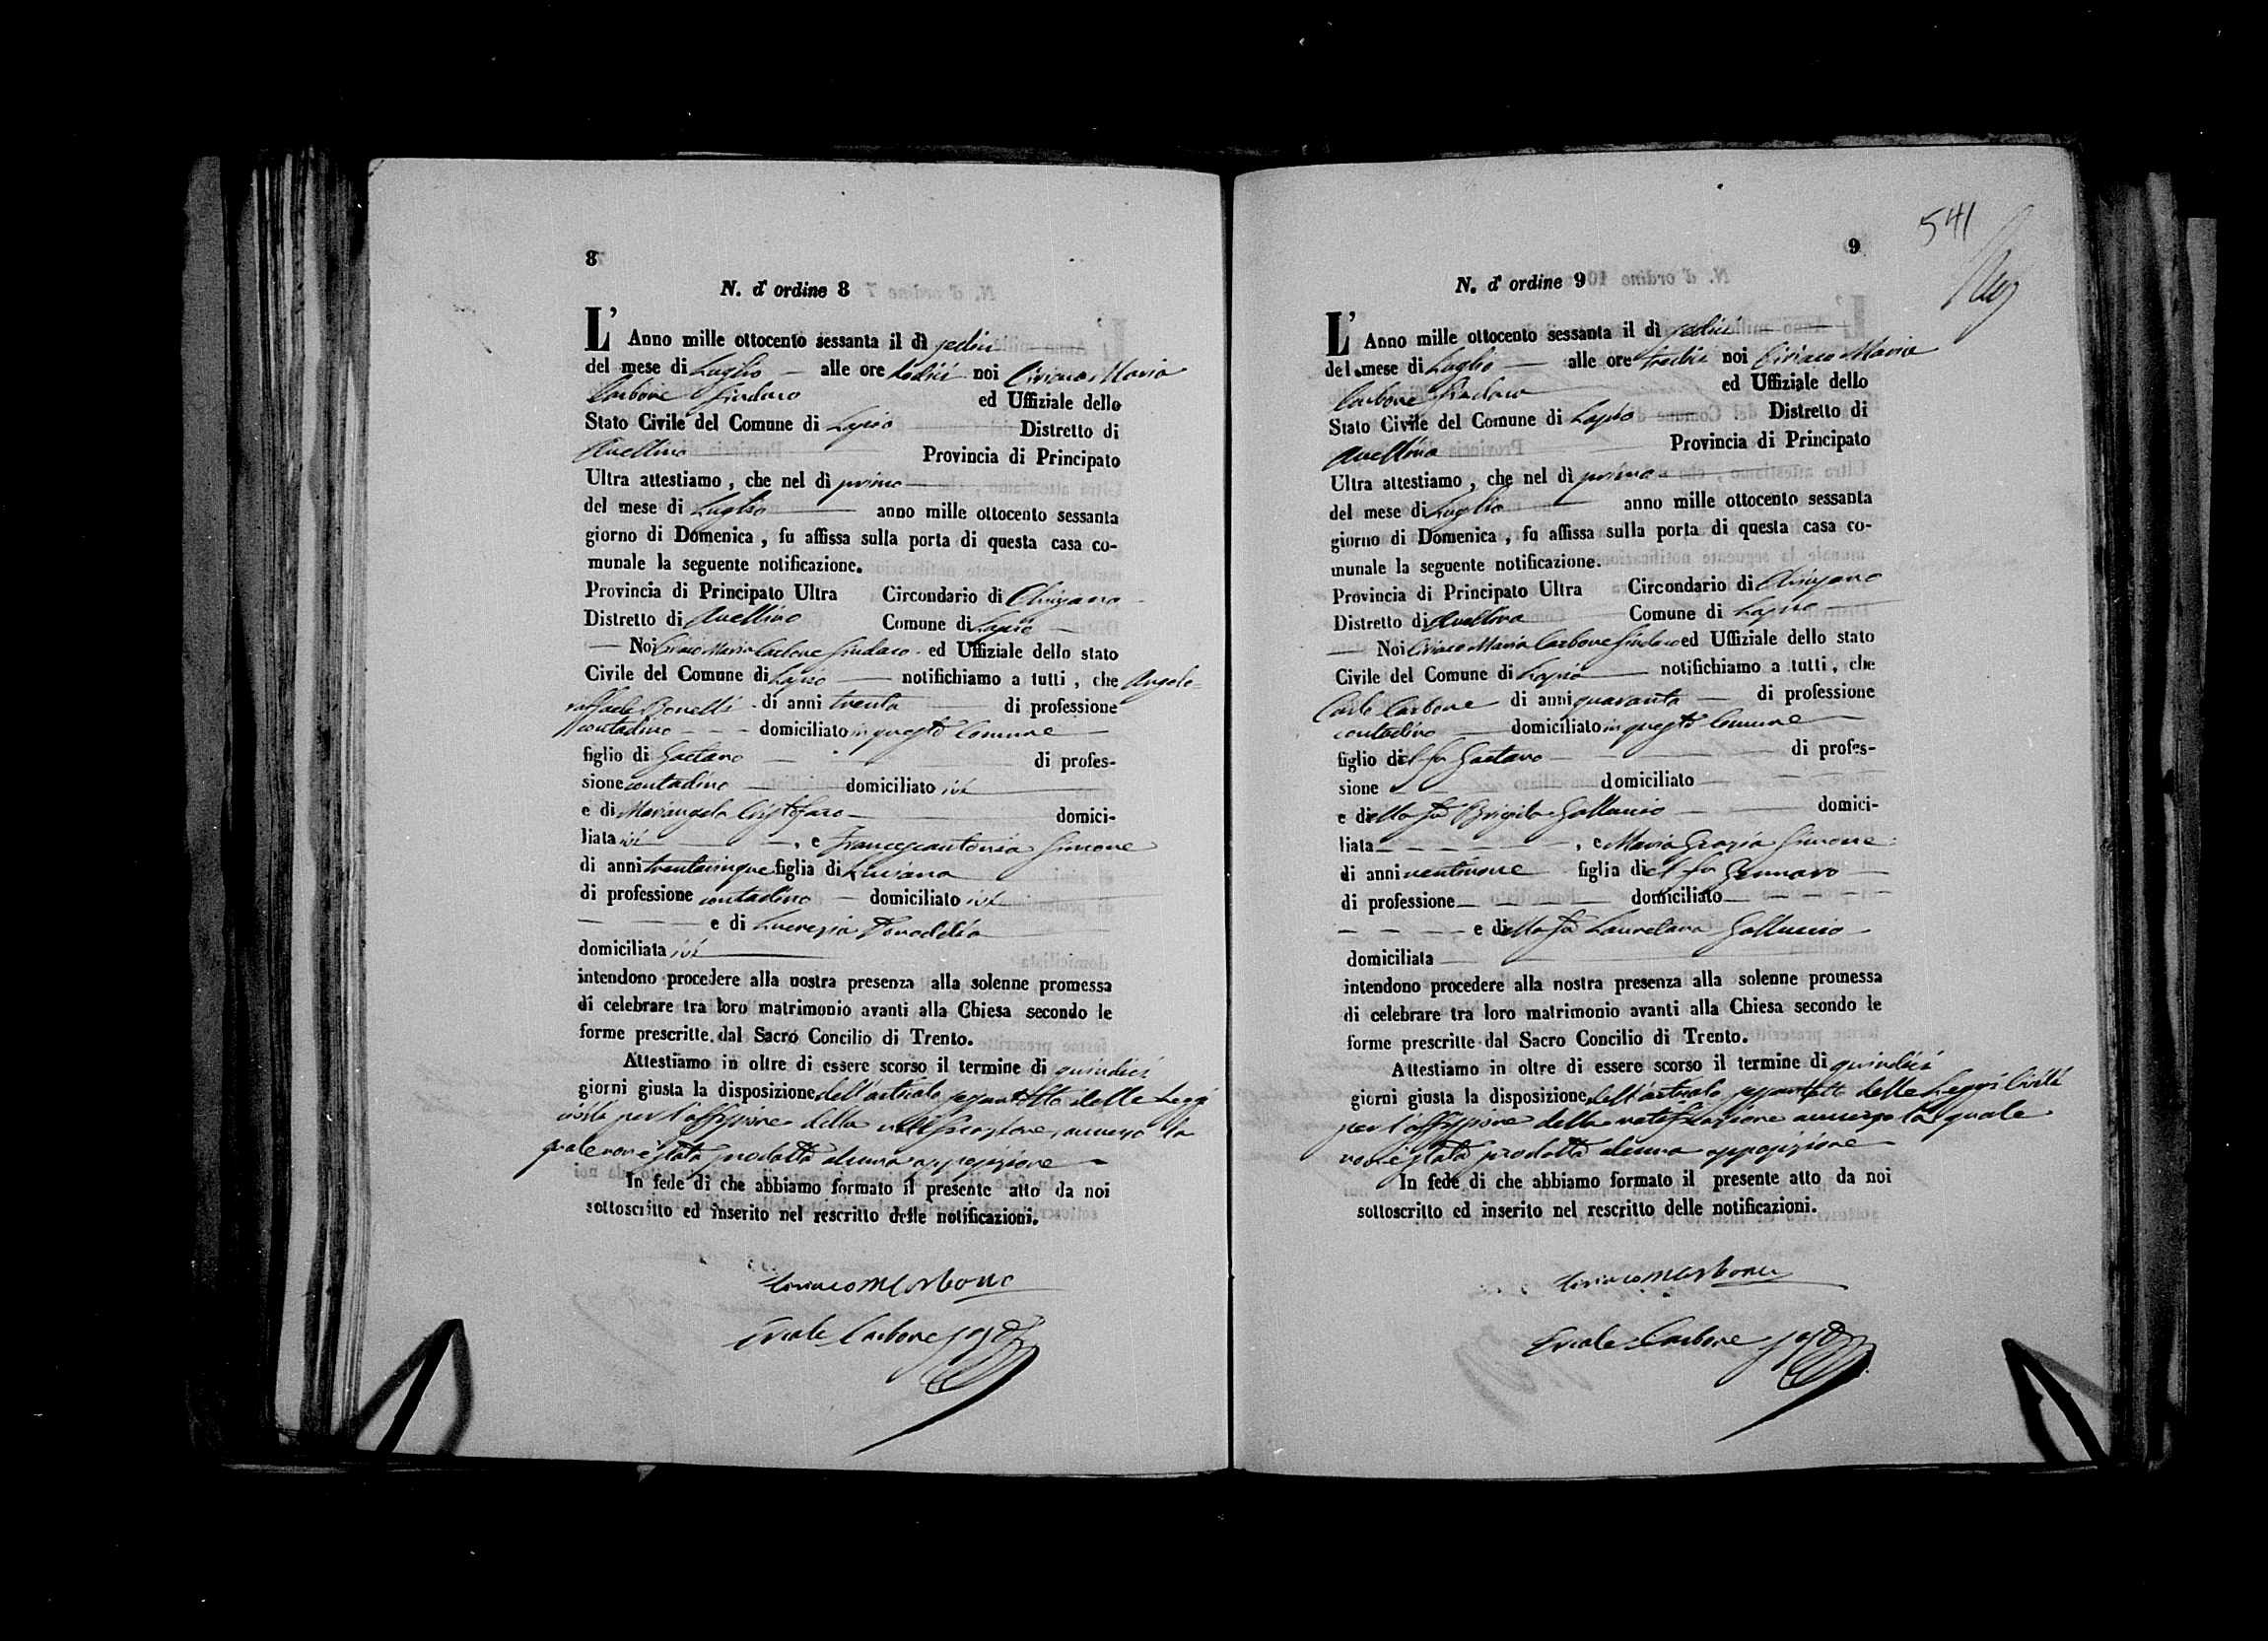 8
N. d' ordine 8
L' Anno mille ottocento sessanta il dì sedici
del mese di Luglio — alle ore dodici noi Ciriaco Maria
Carbone Sindaco ed Uffiziale dello
Stato Civile del Comune di Lapio Distretto di
Avellino Provincia di Principato
Ultra attestiamo , che nel dì primo —
del mese di Luglio — anno mille ottocento sessanta
giorno di Domenica , fu affissa sulla porta di questa casa co-
munale la seguente notificazione.
Provincia di Principato Ultra Circondario di Chiusano
Distretto di Avellino Comune di Lapio —
— Noi Ciriaco Maria Carbone Sindaco ed Uffiziale dello stato
Civile del Comune di Lapio — notifichiamo a tutti , che Angelo=
raffaele Bonelli di anni trenta — di professione
contadino - - - domiciliato in questo Comune —
figlio di Gaetano — di profes-
sione contadino — domiciliato ivi —
e di Mariangela Cristofaro — domici-
liata ivi — , e Francescantonia Simone
di anni trentacinque figlia di
di professione contadino — domiciliato ivi —
— — — e di Lucrezia
domiciliata ivi —
intendono procedere alla nostra presenza alla solenne promessa
di celebrare tra loro matrimonio avanti alla Chiesa secondo le
forme prescritte dal Sacro Concilio di Trento.
Attestiamo in oltre di essere scorso il termine di quindici
giorni giusta la disposizione dell'articolo sessantotto delle Leggi
civili per l'affissione della notificazione, avverso la
quale non è stata prodotta alcuna opposizione —
In fede di che abbiamo formato il presente atto da noi
sottoscritto ed inserito nel rescritto delle notificazioni.
Ciriaco M Carbone
Carbone
9
541
N. d' ordine 9
L' Anno mille ottocento sessanta il dì sedici
del mese di Luglio — alle ore tredici noi Ciriaco Maria
Carbone Sindaco ed Uffiziale dello
Stato Civile del Comune di Lapio Distretto di
Avellino Provincia di Principato
Ultra attestiamo , che nel dì primo —
del mese di Luglio — anno mille ottocento sessanta
giorno di Domenica , fu affissa sulla porta di questa casa co-
munale la seguente notificazione.
Provincia di Principato Ultra Circondario di Chiusano
Distretto di Avellino Comune di Lapio —
— Noi Ciriaco Maria Carbone Sindaco ed Uffiziale dello stato
Civile del Comune di Lapio — notifichiamo a tutti , che
Carlo Carbone di anni quaranta — di professione
contadino — domiciliato in questo Comune —
figlio del fu Gaetano — di profes-
sione — domiciliato —
e della fu Brigida Galluccio — domici-
liata — , e Maria Grazia Simone
di anni ventinove figlia del fu Gennaro —
di professione — domiciliato —
— — — e della fu Laurelana Galluccio —
domiciliata —
intendono procedere alla nostra presenza alla solenne promessa
di celebrare tra loro matrimonio avanti alla Chiesa secondo le
forme prescritte dal Sacro Concilio di Trento.
Attestiamo in oltre di essere scorso il termine di quindici
giorni giusta la disposizione dell'articolo sessantotto delle Leggi Civili
per l'affissione della notificazione avverso la quale
non è stata prodotta alcuna opposizione —
In fede di che abbiamo formato il presente atto da noi
sottoscritto ed inserito nel rescritto delle notificazioni.
Ciriaco M Carbone
Carbone